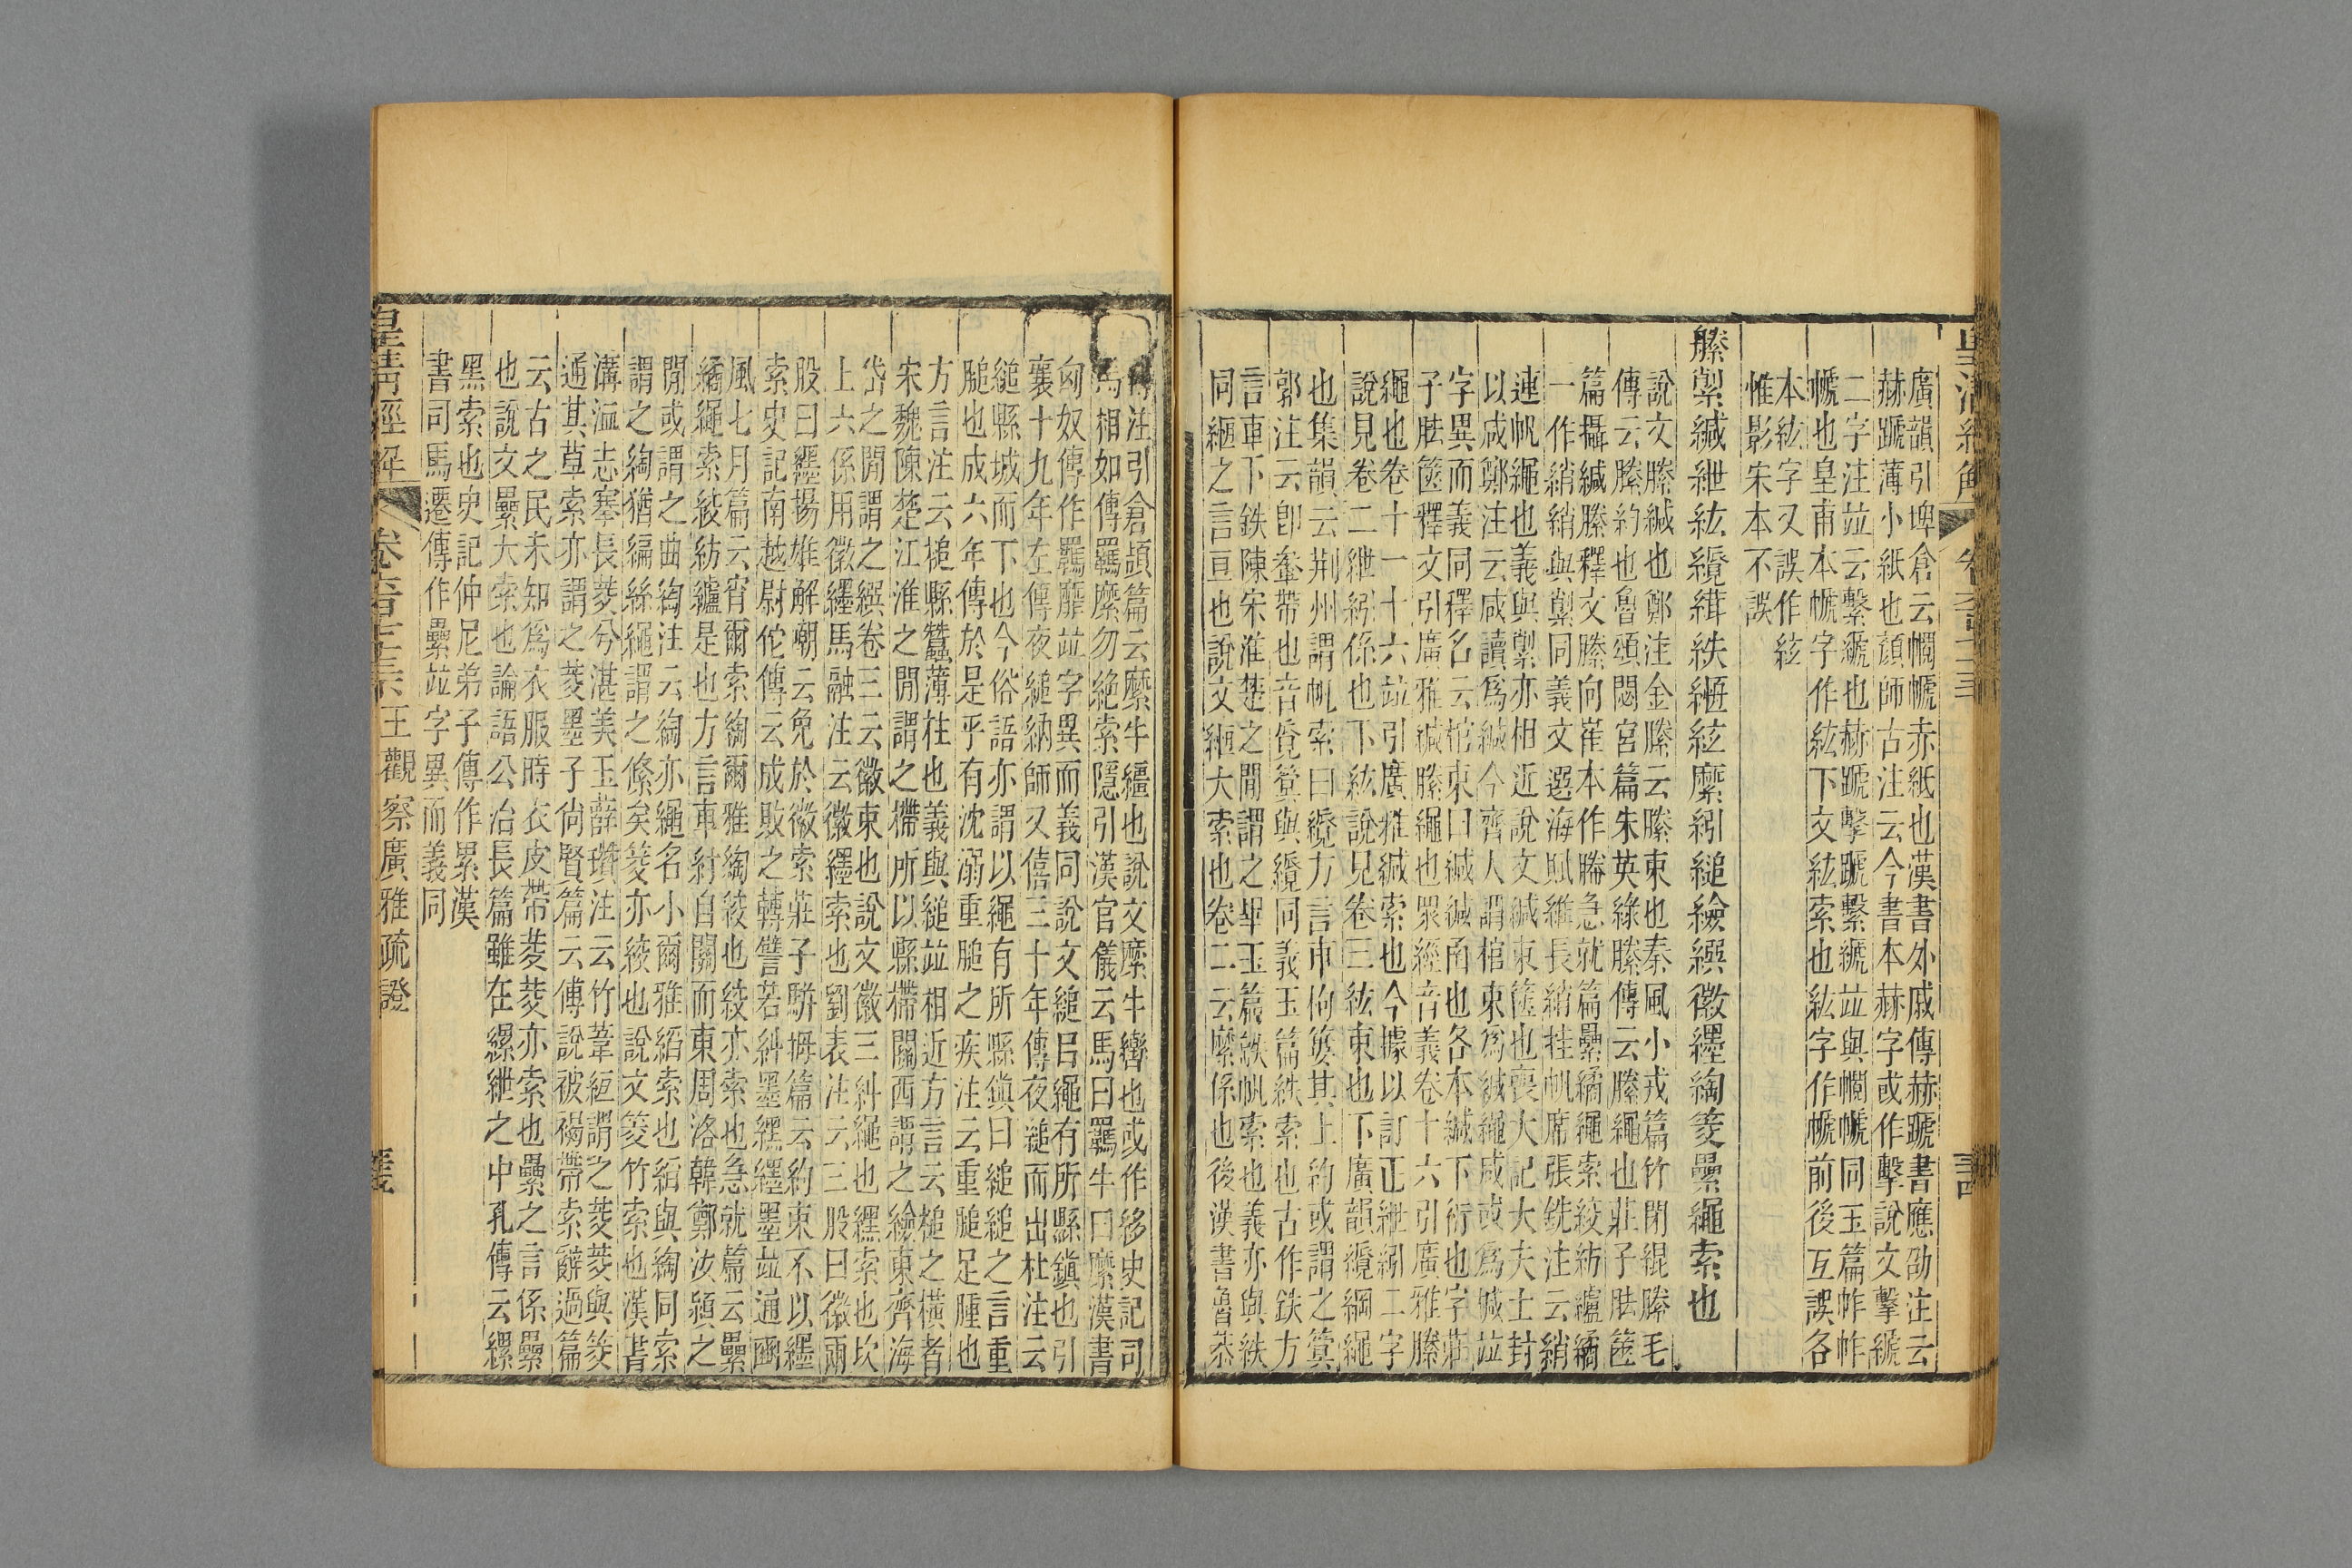 廣韻引埤倉云㡚㡗赤紙也漢書外戚傳赫蹏書應劭注云
赫蹏薄小紙也顔師古注云今書本赫字或作擊說文擊褫
二字注竝云繫褫也赫蹏擊蹏繫褫竝與㡚㡗同玉篇帞帞
㡗也皇甫本㡗字作紘下文紘索也紘字作㡗前後互誤各
本紘字又誤作絃
惟影宋本不誤
縢䋈緘紲紘纜緝紩縆絃縻紖縋繚繏徽纆綯筊纍繩索也
說文縢緘也鄭注金縢云縢束也秦風小戎篇竹閉緄縢毛
傳云縢約也魯頌閟宮篇朱英綠縢傳云縢繩也莊子胠篋
篇攝緘縢釋文縢向崔本作幐急就篇纍繘繩索絞紡纑繘
一作綃綃與䋈同義文選海賦維長綃挂帆席張銑注云綃
連帆繩也義與䋈亦相近說文緘束篋也喪大記大夫士封
以咸鄭注云咸讀爲緘今齊人謂棺束爲緘繩咸或爲椷竝
字異而義同釋名云棺束曰緘緘函也各本緘下衍也字莊
子胠篋釋文引廣雅緘縢繩也眾經音義卷十六引廣雅縢
繩也卷十一十六竝引廣雅緘索也今據以訂正紲紖二字
說見卷二紲紖係也下紘說見卷三紘束也下廣韻纜綱繩
也集韻云荆州謂帆索曰纜方言車枸簍其上約或謂之䈴
郭注云卽䡞帶也音覺䈴與纜同義玉篇紩索也古作鉄方
言車下鉄陳宋淮楚之閒謂之畢玉篇紩帆索也義亦與紩
同縆之言亘也說文縆大索也卷二云縻係也後漢書魯恭
傳注引倉頡篇云縻牛繮也說文縻牛轡也或作䌕史記司
馬相如傳羈縻勿絶索隱引漢官儀云馬曰羈牛曰縻漢書
匈奴傳作羈靡竝字異而義同說文縋㠯繩有所縣鎭也引
襄十九年左傳夜縋納師又僖三十年傳夜縋而出杜注云
縋縣城而下也今俗語亦謂以繩有所縣鎭曰縋縋之言重
膇也成六年傳於是乎有沈溺重膇之疾注云重膇足腫也
方言注云槌縣蠶薄柱也義與縋竝相近方言云槌之橫者
宋魏陳楚江淮之閒謂之㯂所以縣㯂關西謂之繚東齊海
岱之閒謂之繏卷三云徽束也說文徽三糾繩也纆索也坎
上六係用徽纆馬融注云徽纆索也劉表注云三股曰徽兩
股曰纆揚雄解嘲云免於徽索莊子駢拇篇云約束不以纆
索史記南越尉佗傳云成敗之轉譬若糾墨纆纆墨竝通豳
風七月篇云宵爾索綯爾雅綯絞也絞亦索也急就篇云纍
繘繩索絞紡纑是也方言車紂自關而東周洛韓鄭汝潁之
閒或謂之曲綯注云綯亦繩名小爾雅縚索也縚與綯同索
謂之綯猶編絲繩謂之絛矣筊亦絞也說文筊竹索也漢書
溝洫志搴長茭兮湛美玉薛瓚注云竹葦絙謂之茭茭與筊
通其草索亦謂之茭墨子尙賢篇云傅說被褐帶索辭過篇
云古之民未知爲衣服時衣皮帶茭茭亦索也纍之言係纍
也說文纍大索也論語公冶長篇雖在縲絏之中孔傳云縲
黑索也史記仲尼弟子傳作累漢
書司馬遷傳作纍竝字異而義同
皇清經解 王觀察廣雅疏證